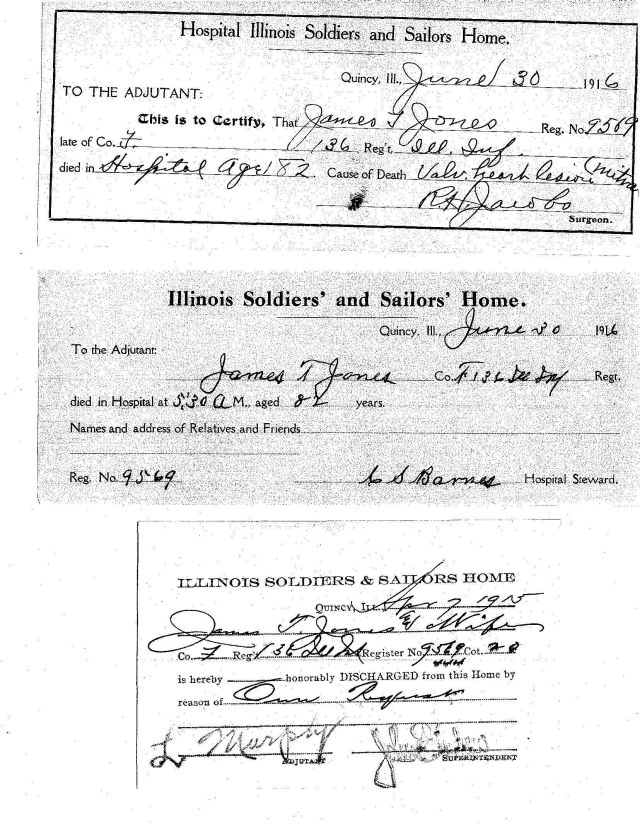 Hospital Illinois Soldiers and Sailors Home.
Quincy, Ill., June 30 1916
TO THE ADJUTANT:
This is to Certify, That James T Jones Reg. No. 9569
late of Co. F. 136 Reg't. Ill. Inf.
died in Hospital Age 82 Cause of Death Valv. heart lesion (Mitral
R H Jacobs
Surgeon.
Illinois Soldiers' and Sailors' Home.
Quincy, Ill., June 30 1916
To the Adjutant:
James T Jones Co. F 136 Ill Inf Regt.
died in Hospital at 5:30 A M., aged 82 years.
Names and address of Relatives and Friends
Reg. No. 9569 C S Barnes Hospital Steward.
ILLINOIS SOLDIERS & SAILORS HOME
QUINCY, ILL. Apr 7 1915
James T. Jones & Wife
Co. F Reg't 136 Ill Inf Register No. 9569 Cot.
is hereby honorably DISCHARGED from this Home by
reason of Own Request
L Murphy
ADJUTANT SUPERINTENDENT